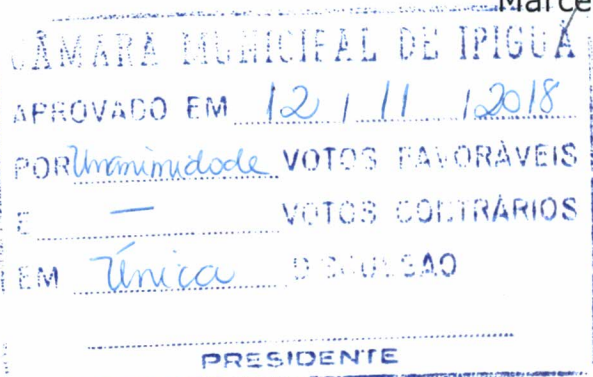 Marce
CÂMARA MUNICIPAL DE IPIGUÁ
APROVADO EM 12 / 11 / 2018
POR Unanimidade VOTOS FAVORÁVEIS
E — VOTOS CONTRÁRIOS
EM Única DISCUSSÃO
PRESIDENTE